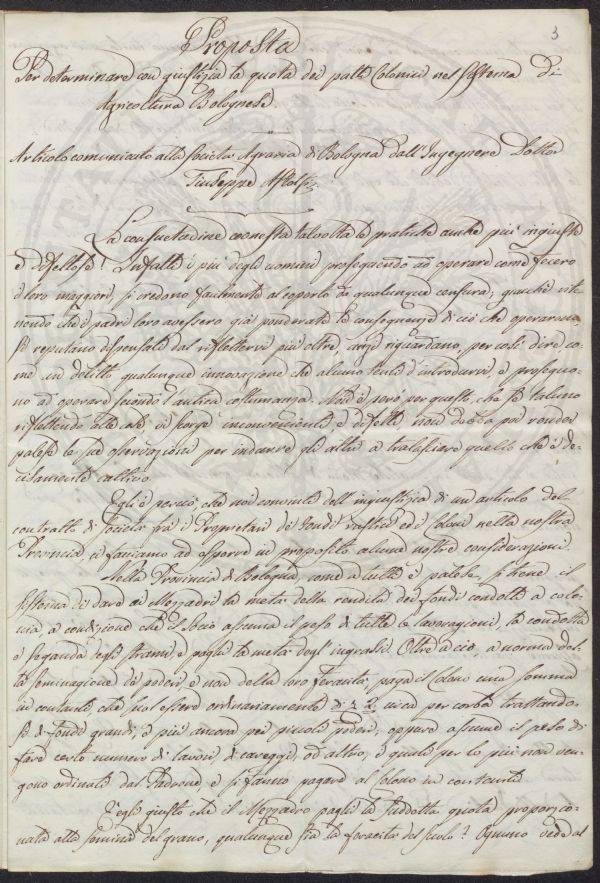 3
Proposta
Per determinare con giustizia la quota dei patti Colonici nel sistema di
Agricoltura Bolognese.
Articolo comunicato alla Società Agraria di Bologna dall'Ingegnere Dottor
Giuseppe Astolfi
La consuetudine onesta talvolta le pratiche anche più ingiuste
e difettose! Infatti i più degli uomini proseguendo ad operare come fecero
i loro maggiori, si credono facilmente al coperto da qualunque censura, giacchè rite-
nendo che i padri loro avessero già ponderate le conseguenze di ciò che operarono,
si reputano dispensati dal riflettervi più oltre, anzi riguardano, per così dire co-
me un delitto qualunque innovazione che alcuno tenti d'introdurvi, e proseguo-
no ad operare secondo l'antica costumanza. Non è però per questo, che se taluno
riflettendo alle cose vi scorge inconvenienti, e difetti, non debba poi render
palesi le sue osservazioni per indurre gli altri a tralasciare quello che è de-
cisamente cattivo.
Egli è perciò, che noi convinti dell'ingiustizia di un articolo del
contratto di società fra i Proprietari de' fondi rustici ed i Coloni nella nostra
Provincia ci facciamo ad esporre in proposito alcune nostre considerazioni.
Nella Provincia di Bologna, come a tutti è palese si tiene il
sistema di dare ai Mezzadri la metà della rendita dei fondi condotti a colo-
nia, a condizione che il Socio assuma il peso di tutte le lavorazioni, la condotta
e seganda degli strami, e paghi la metà degl'ingrassi. Oltre a ciò, a norma del-
la seminagione de' poderi, e non della loro feracità paga il Colono una somma
in contanti che suol essere ordinariamente di 2 circa per corba trattando-
si di fondi grandi, e più ancora pei piccoli poderi, oppure assume il peso di
fare certo numero di lavori, di careggi, od altro, i quali per lo più non ven-
gono ordinati dal Padrone e si fanno pagare al Colono in contanti.
È egli giusto che il Mezzadro paghi la suddetta quota proporzio-
nata alla semina del grano, qualunque sia la feracità del suolo? Ognuno vede al